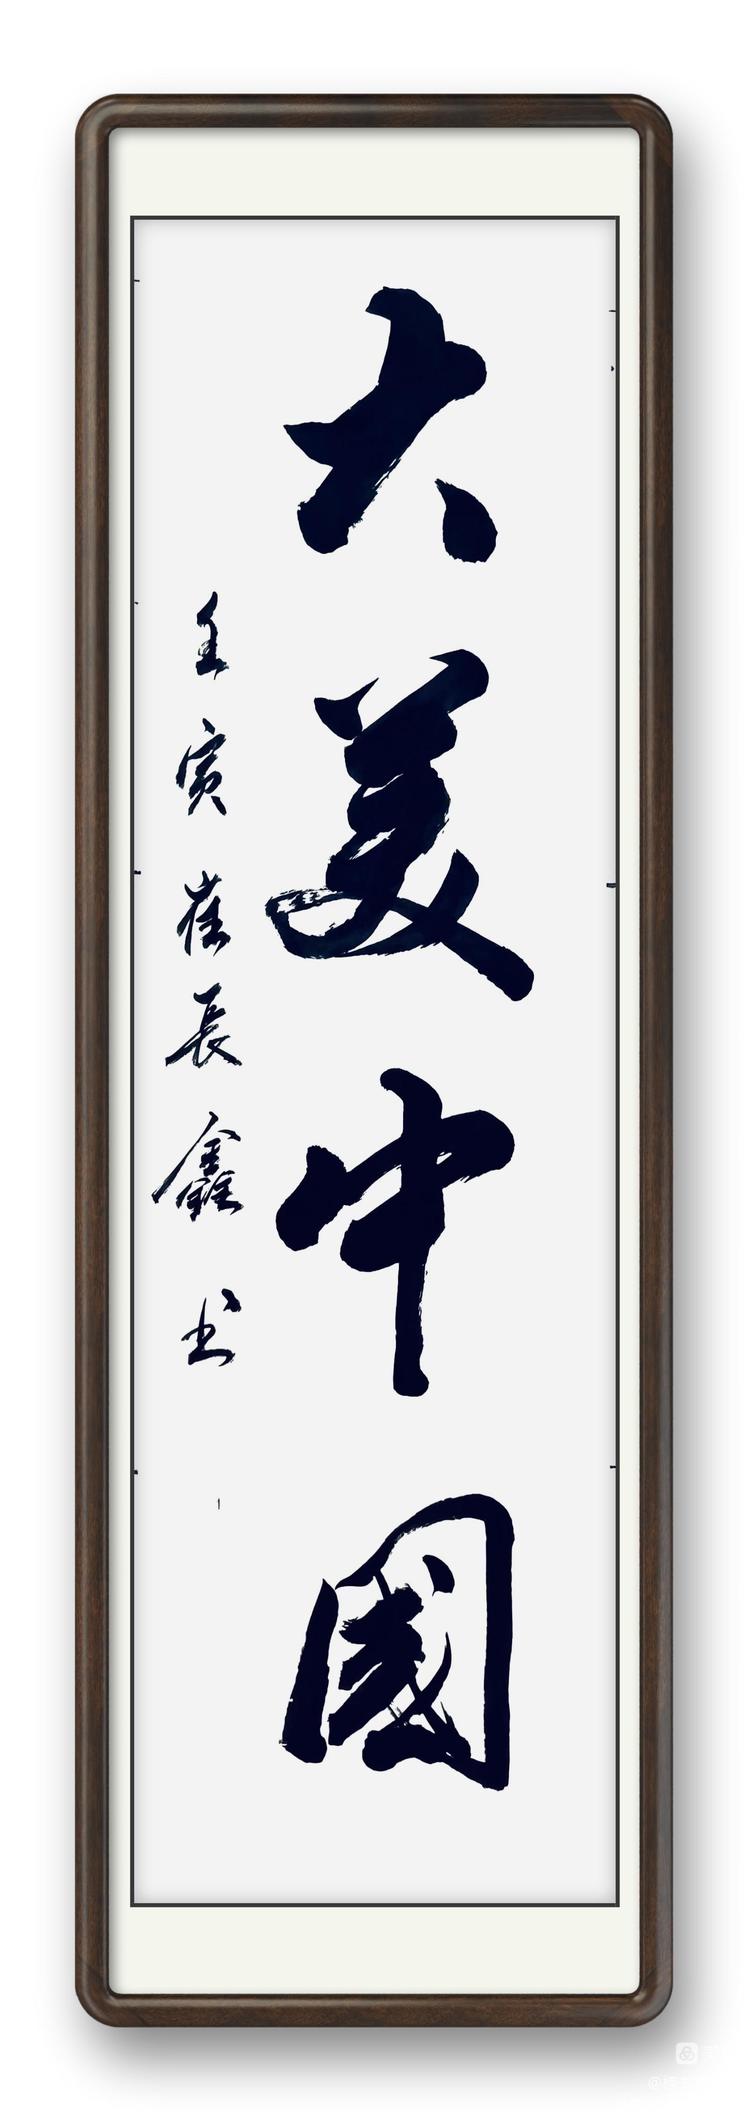 大美中國
壬寅崔長鑫书